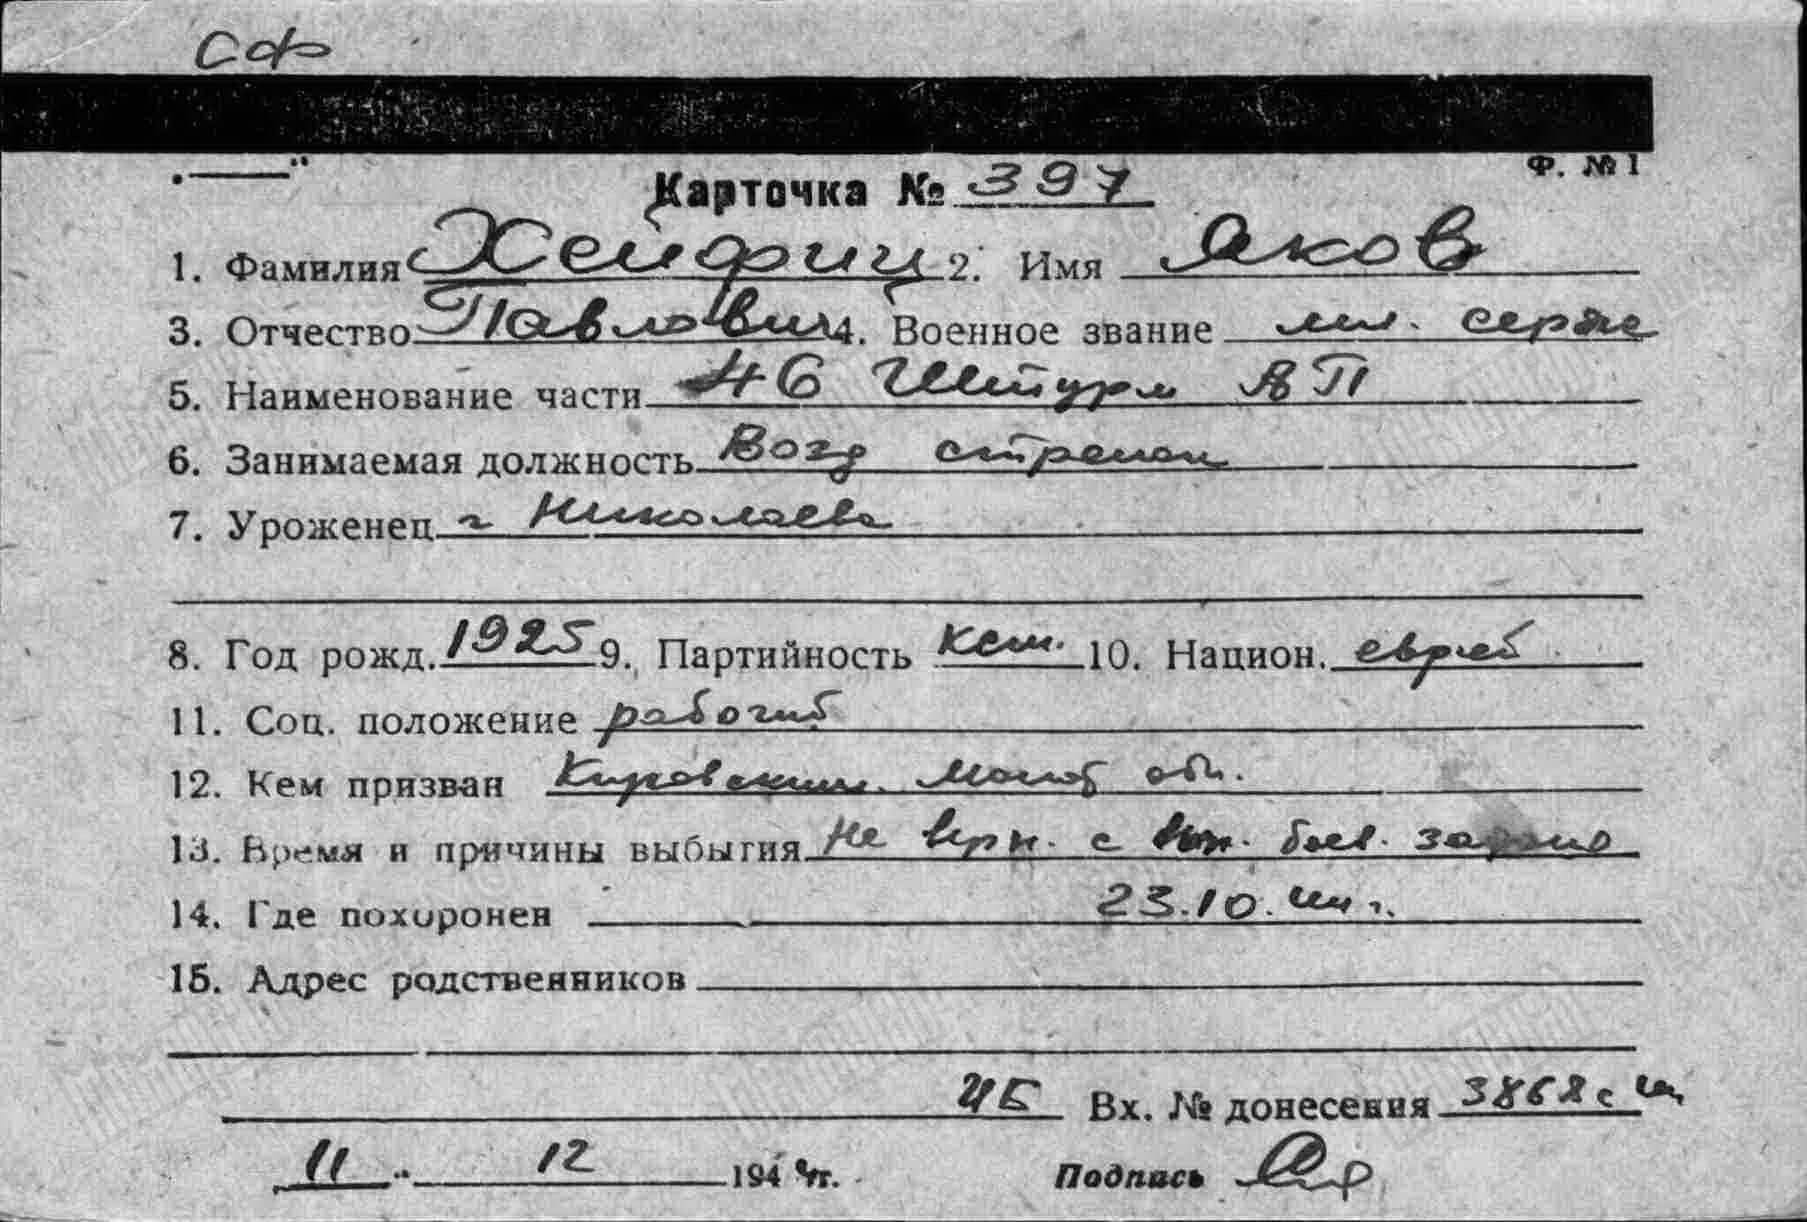 СФ
Ф. № 1
Карточка № 397
1. Фамилия Хейфиц 2. Имя Яков
3. Отчество Павлович 4. Военное звание мл. серж
5. Наименование части 46 Штурм АП
6. Занимаемая должность Возд стрелок
7. Уроженец г Николаева
8. Год рожд. 1925 9. Партийность ксм. 10. Национ. еврей
11. Соц. положение рабочий
12. Кем призван Кировским Молот обл.
13. Время и причины выбытия Не верн. с вып. боев. задания
14. Где похоронен 23.10.44 г.
15. Адрес родственников
ИБ Вх. № донесения 3868с 44
11 12 1944г. Подпись